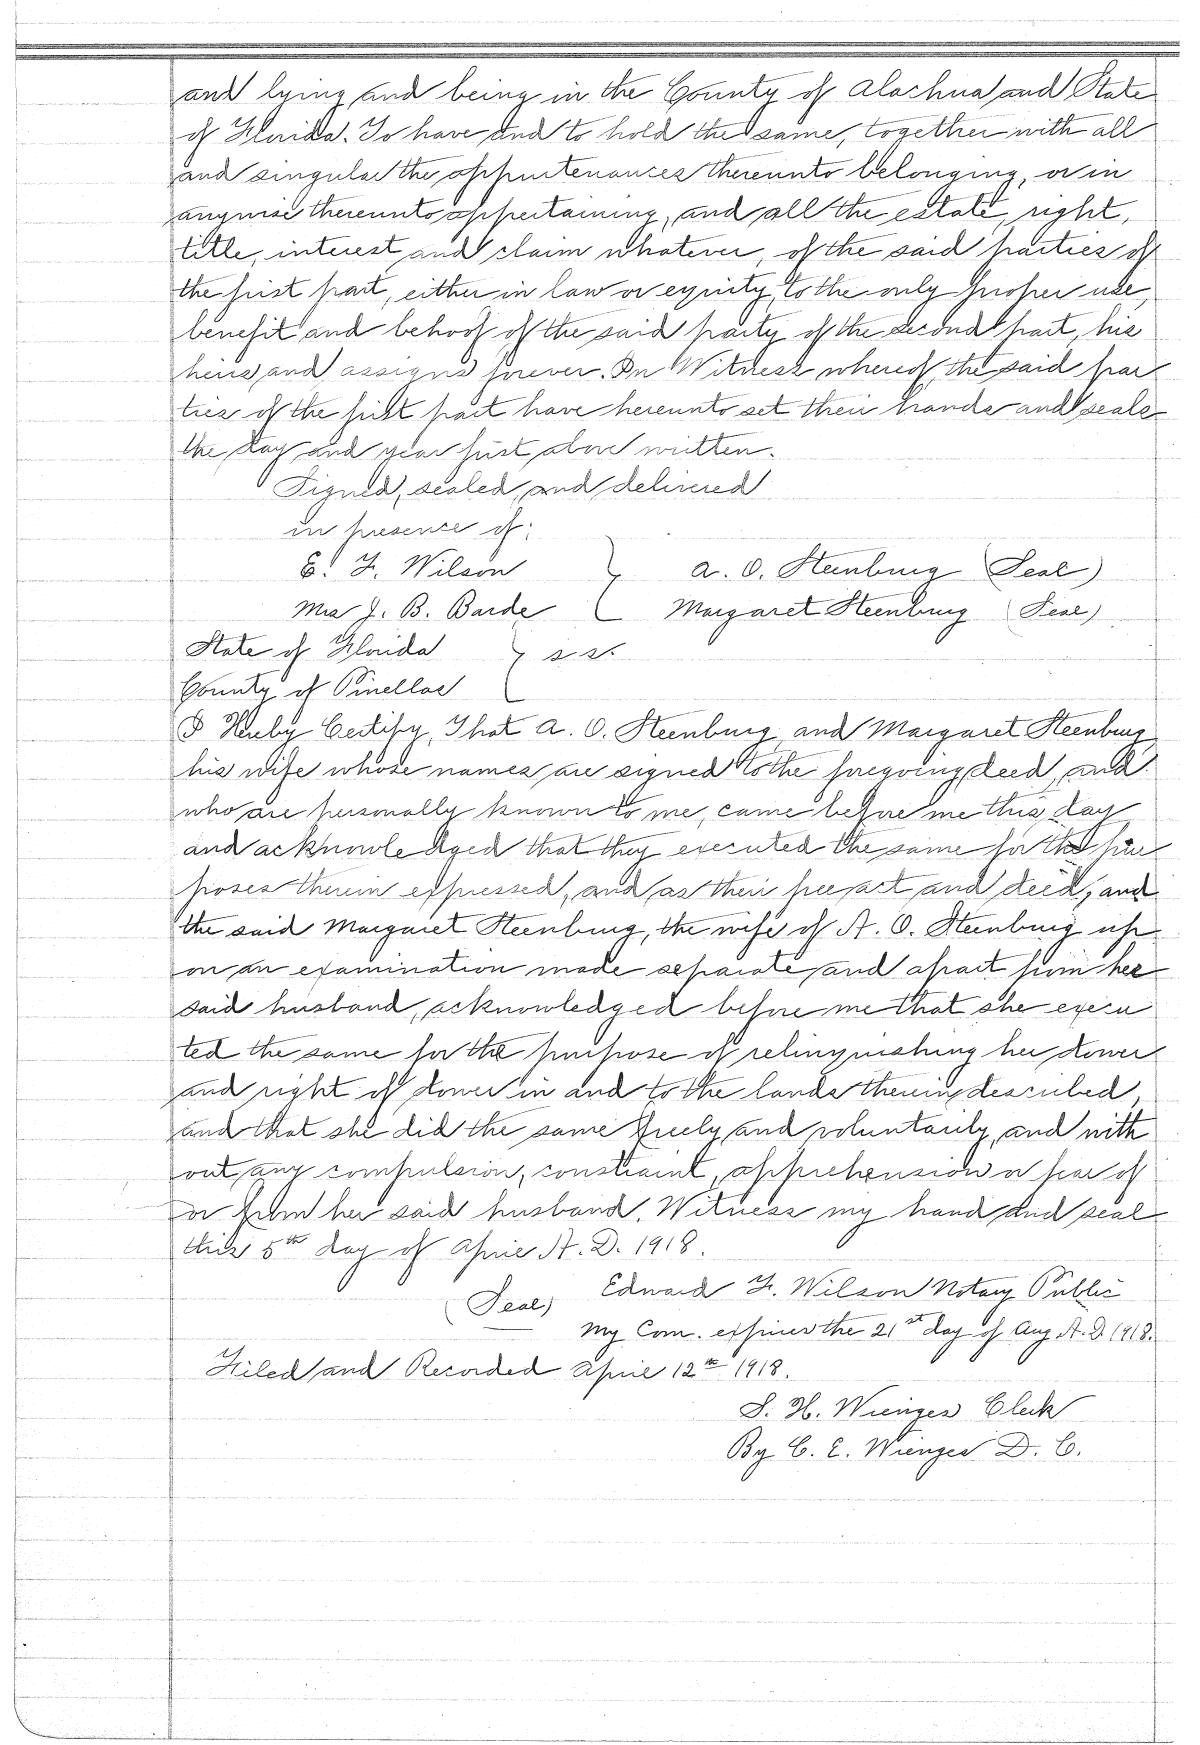 and lying and being in the County of Alachua and State
of Florida. To have and to hold the same, together with all
and singular the appurtenances thereunto belonging, or in
anywise thereunto appertaining, and all the estate, right,
title, interest and claim whatever, of the said parties of
the first part, either in law or equity, to the only proper use,
benefit and behoof of the said party of the second part, his
heirs and assigns forever. In Witness whereof, the said par
ties of the first part have hereunto set their hands and seals
the day and year first above written.
Signed, sealed and delivered
in presence of:
E. F. Wilson } A. O. Steenburg (Seal)
Mrs J. B. Barde Margaret Steenburg (Seal)
State of Florida } s.s.
County of Pinellas
I Hereby Certify, That A. O. Steenburg and Margaret Steenburg
his wife whose names are signed to the foregoing deed, and
who are personally known to me, came before me this day
and acknowledged that they executed the same for the pur
poses therein expressed, and as their free act and deed; and
the said Margaret Steenburg, the wife of A. O. Steenburg up
on an examination made separate and apart from her
said husband, acknowledged before me that she execu
ted the same for the purpose of relinquishing her dower
and right of dower in and to the lands therein described,
and that she did the same freely and voluntarily, and with
out any compulsion, constraint, apprehension or fear of
or from her said husband. Witness my hand and seal
this 5th day of April A. D. 1918.
(Seal) Edward F. Wilson Notary Public
My Com. expires the 21st day of Aug A. D. 1918.
Filed and Recorded April 12th 1918.
S. H. Wienges Clerk
By C. E. Wienges D. C.